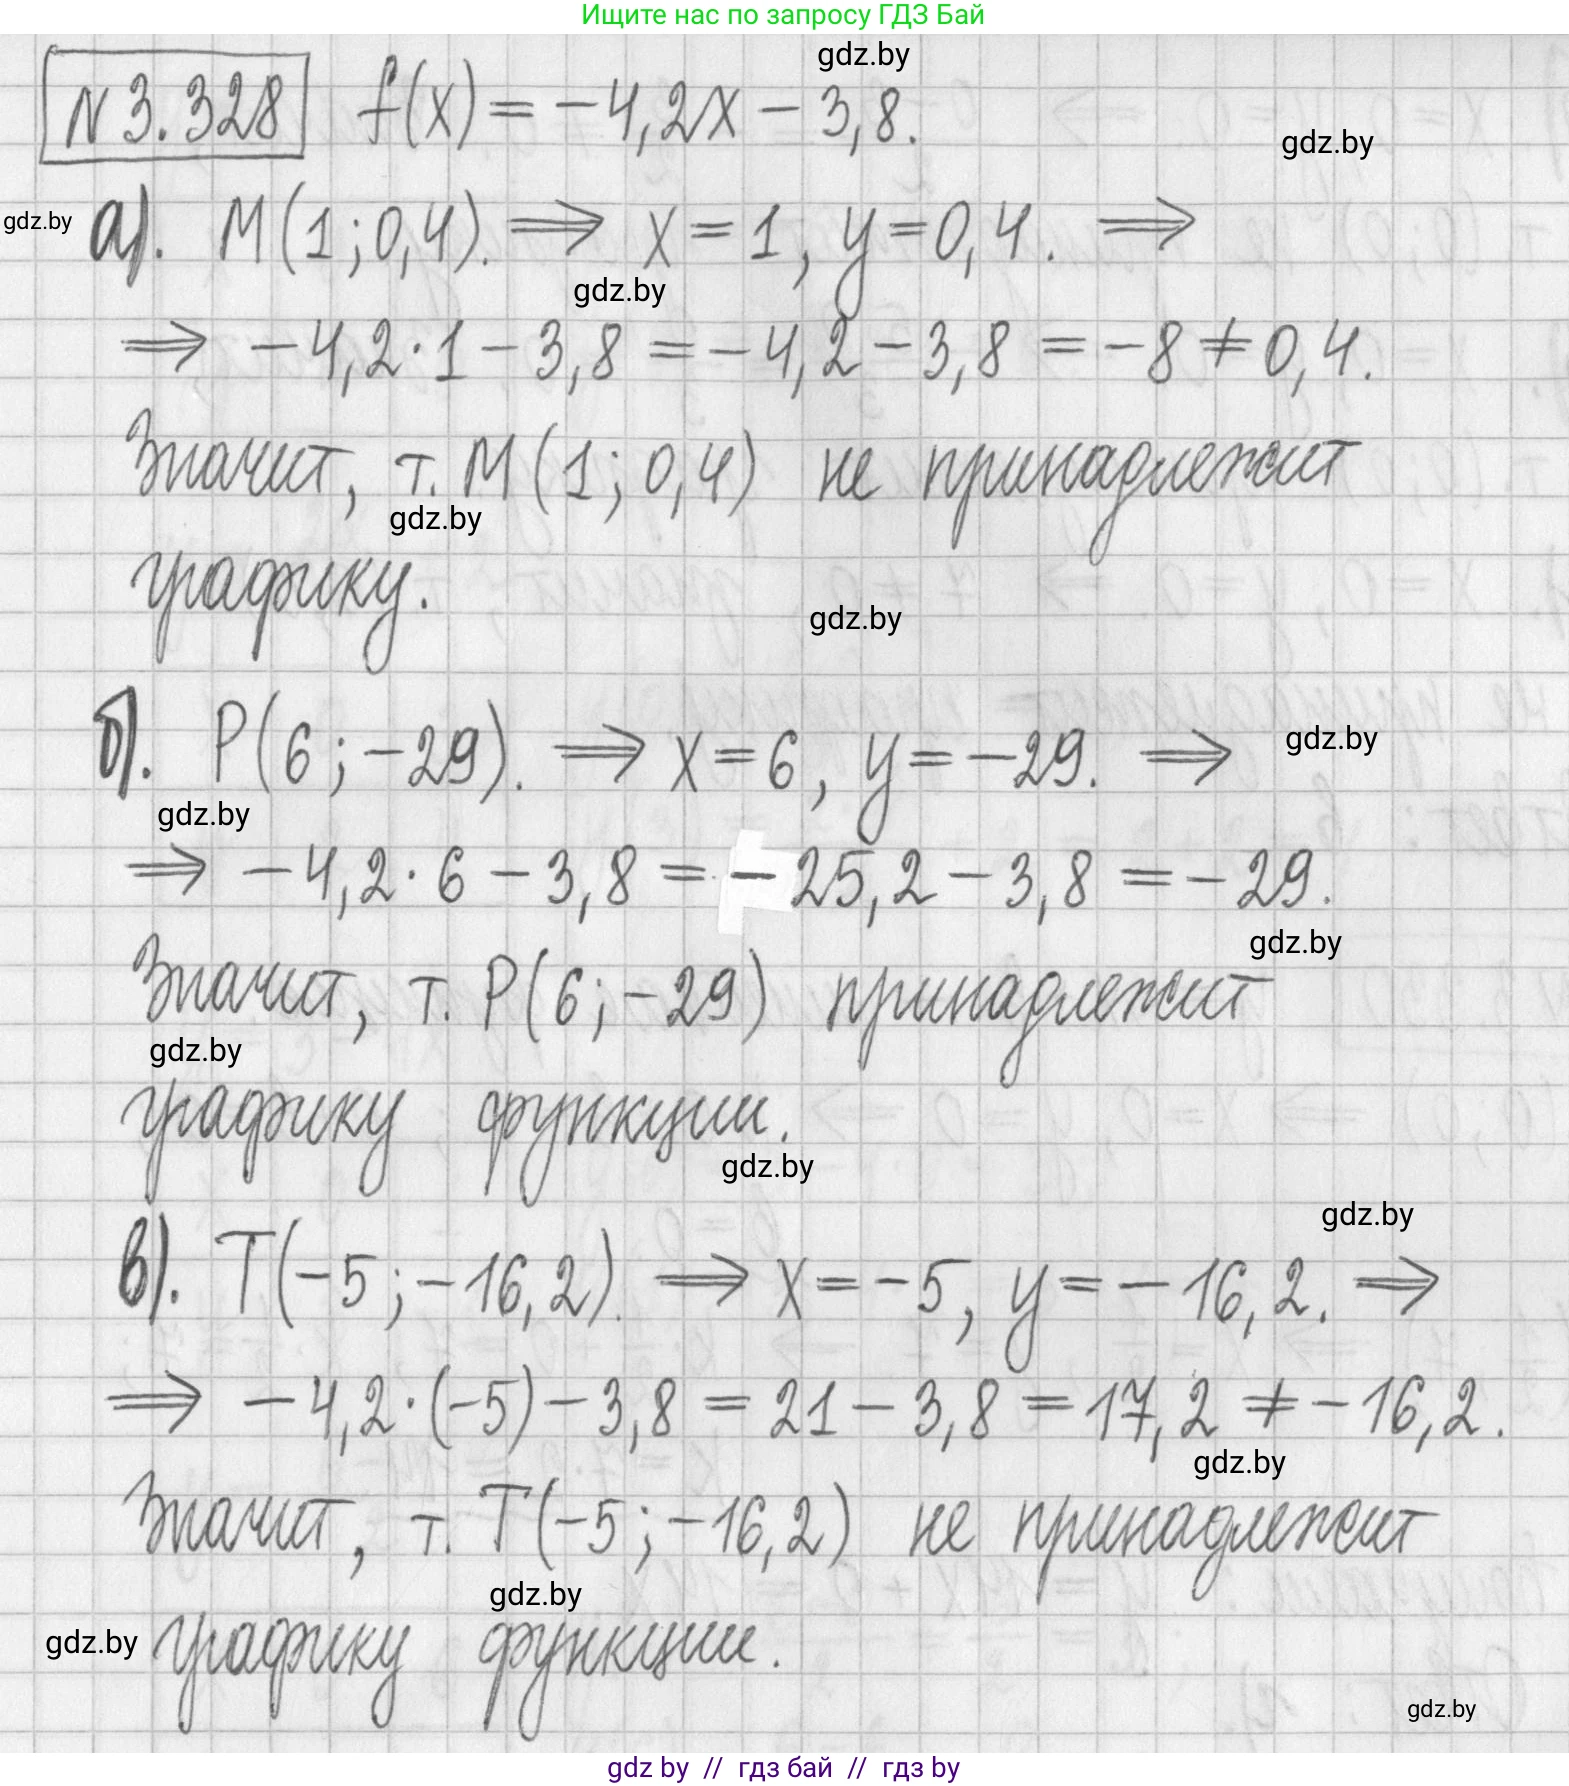 Ищите нас по запросу ГДЗ Бай
gdz.by
N 3.328 f(x) = -4,2x - 3,8.
gdz.by
gdz.by а). M(1; 0,4). ⟹ x = 1, y = 0,4. ⟹
gdz.by
⟹ -4,2 · 1 - 3,8 = -4,2 - 3,8 = -8 ≠ 0,4.
Значит, т. M(1; 0,4) не принадлежит
gdz.by
графику.
gdz.by
б). P(6; -29). ⟹ x = 6, y = -29. ⟹
gdz.by
gdz.by
⟹ -4,2 · 6 - 3,8 = -25,2 - 3,8 = -29.
gdz.by
Значит, т. P(6; -29) принадлежит
gdz.by
графику функции.
gdz.by
gdz.by
в). T(-5; -16,2). ⟹ x = -5, y = -16,2. ⟹
⟹ -4,2 · (-5) - 3,8 = 21 - 3,8 = 17,2 ≠ -16,2.
gdz.by
Значит, т. T(-5; -16,2) не принадлежит
gdz.by
gdz.by графику функции.
gdz.by
gdz by // гдз бай // гдз by